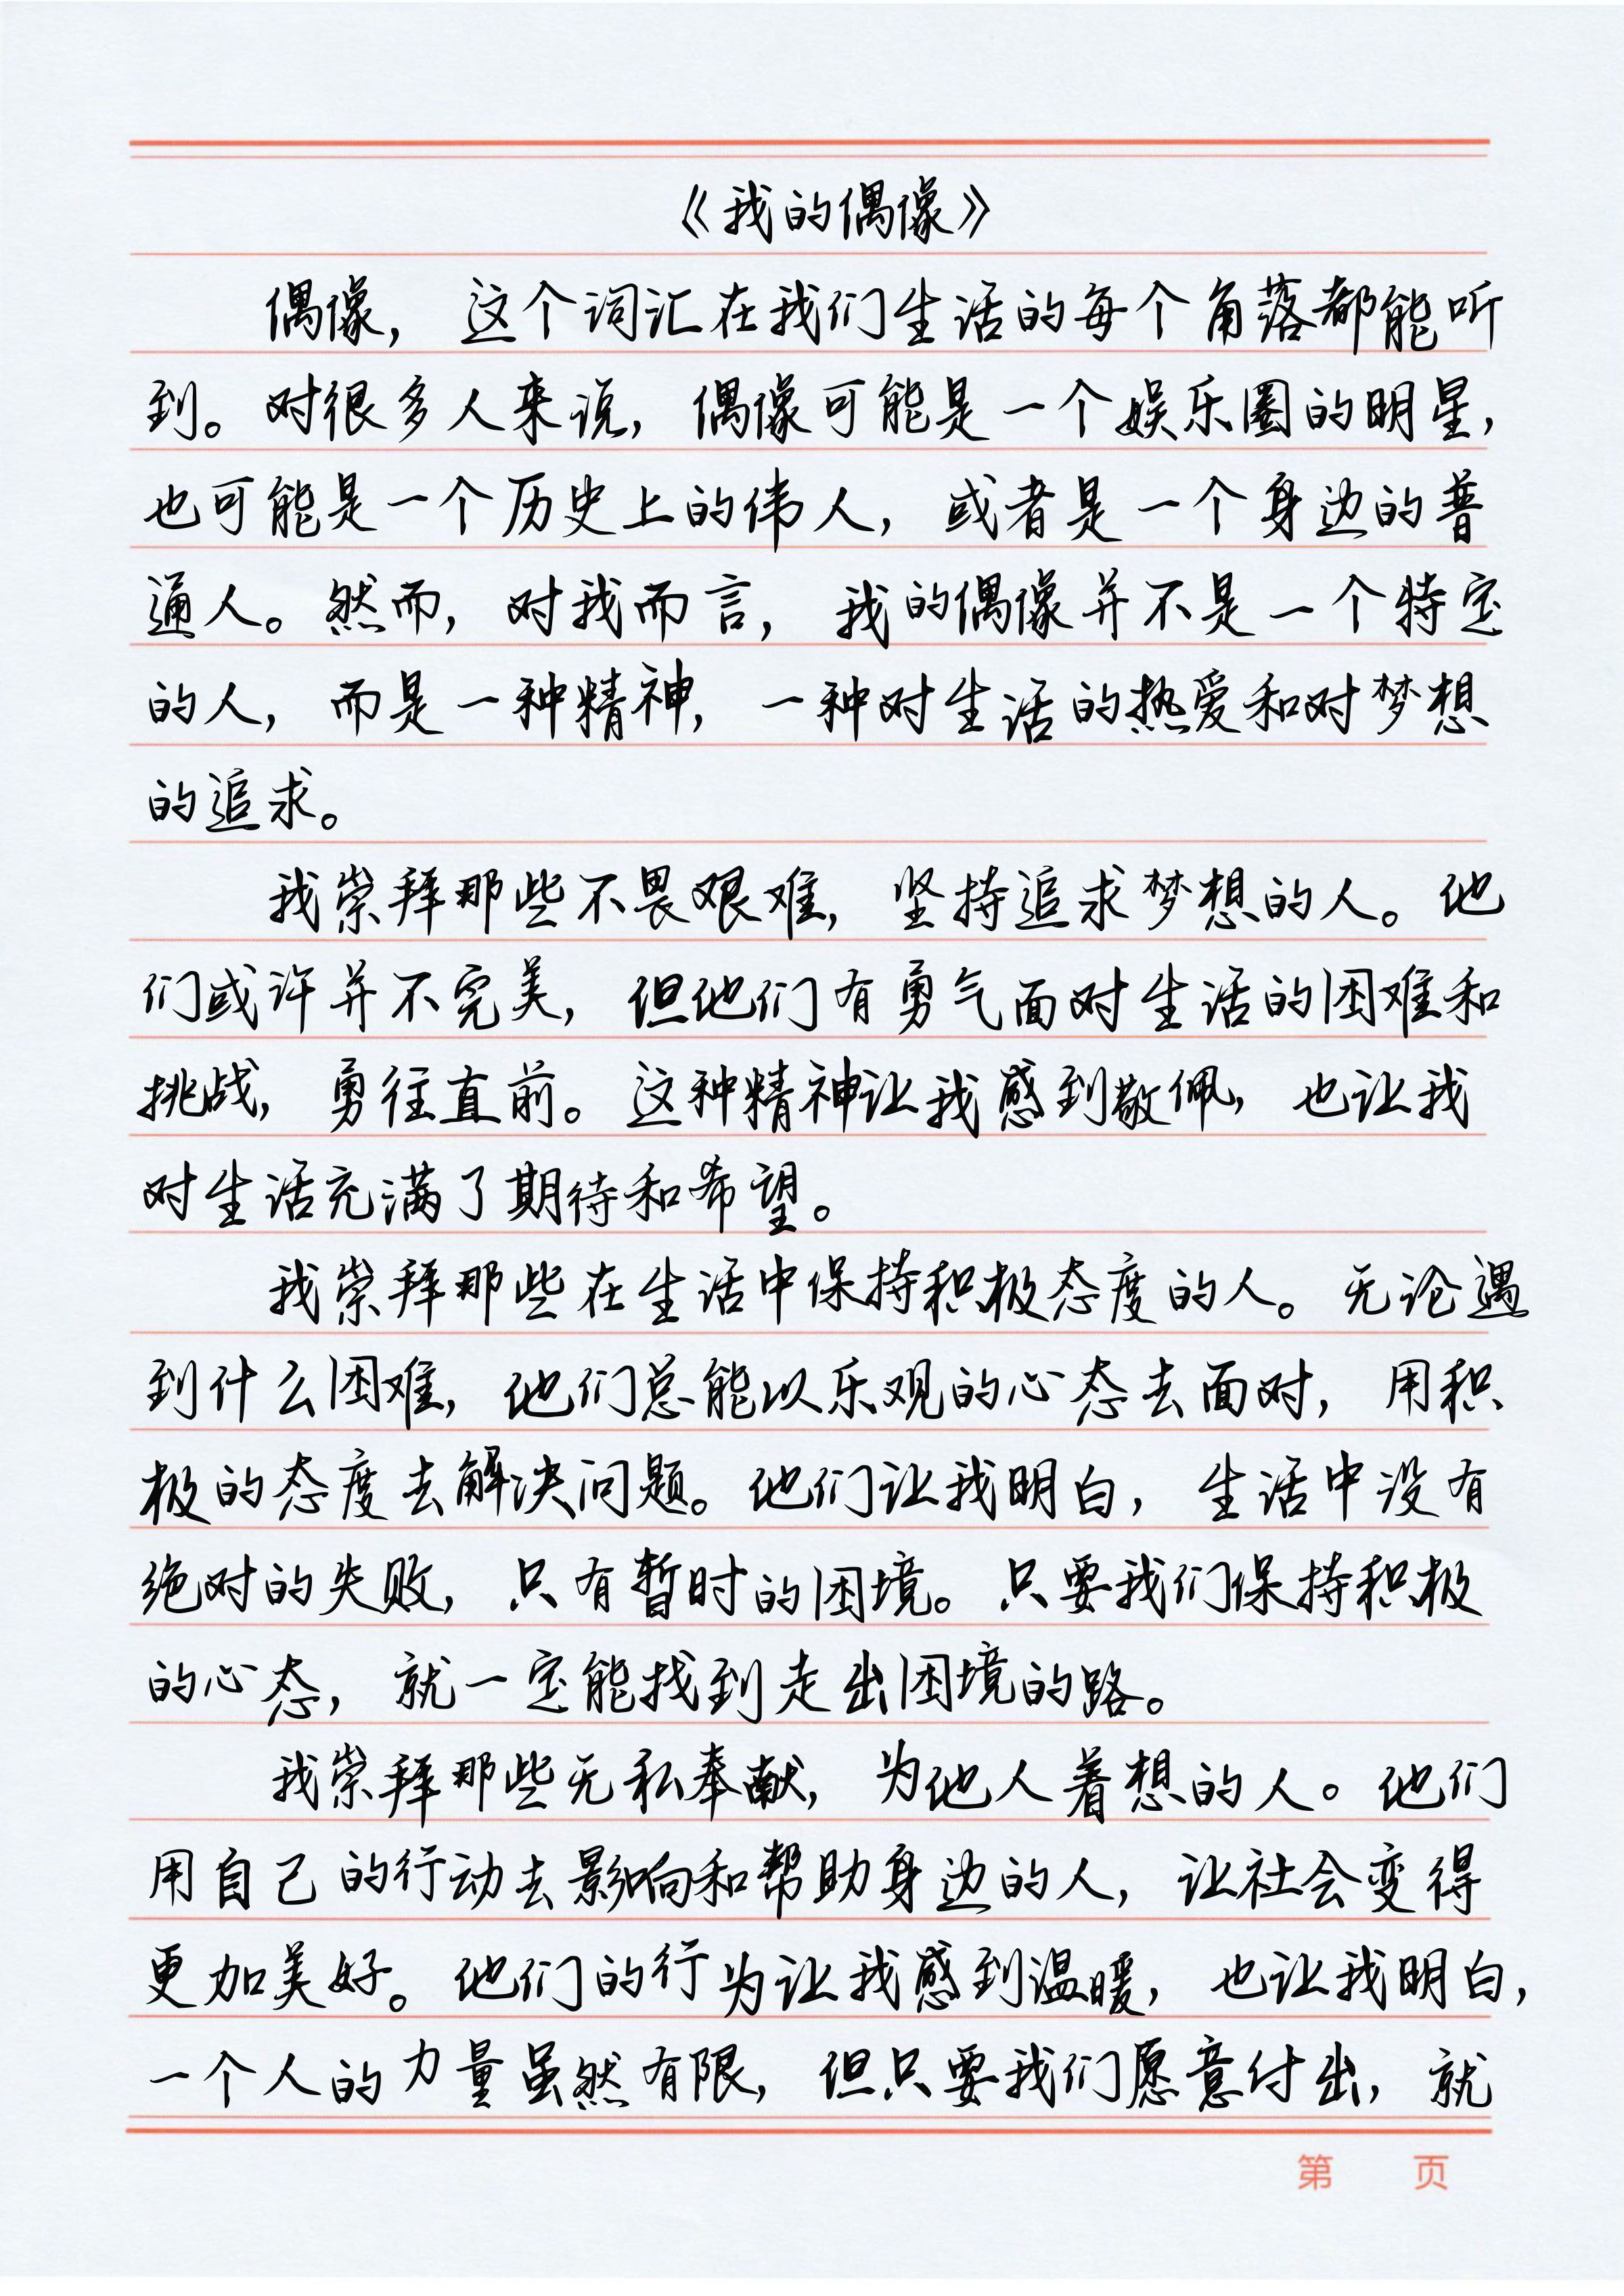 《我的偶像》
偶像，这个词汇在我们生活的每个角落都能听
到。对很多人来说，偶像可能是一个娱乐圈的明星，
也可能是一个历史上的伟人，或者是一个身边的普
通人。然而，对我而言，我的偶像并不是一个特定
的人，而是一种精神，一种对生活的热爱和对梦想
的追求。
我崇拜那些不畏艰难，坚持追求梦想的人。他
们或许并不完美，但他们有勇气面对生活的困难和
挑战，勇往直前。这种精神让我感到敬佩，也让我
对生活充满了期待和希望。
我崇拜那些在生活中保持积极态度的人。无论遇
到什么困难，他们总能以乐观的心态去面对，用积
极的态度去解决问题。他们让我明白，生活中没有
绝对的失败，只有暂时的困境。只要我们保持积极
的心态，就一定能找到走出困境的路。
我崇拜那些无私奉献，为他人着想的人。他们
用自己的行动去影响和帮助身边的人，让社会变得
更加美好。他们的行为让我感到温暖，也让我明白，
一个人的力量虽然有限，但只要我们愿意付出，就
第 页